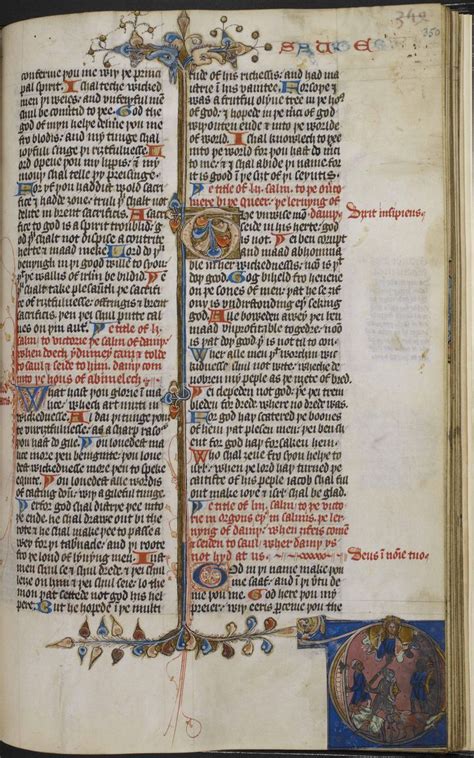 349
350
conferme þou me wiþ þe princi
pal spirit. I schal teche wickede
men þi weies: and unfeiþful me
schul be conuertid to þee. God the
god of myn helþe deliue þou me
fro blodis: and my tunge schal
ioyfuli singe þi riȝtfulnesse. Lord
opene þou my lippis: ⁊ my
mouþ schal telle þi preisinge.
For ȝif þou haddist wold sacri
fice
delite in brent sacrifices. A sacri
fice to god is a spirit troublid: g
od þou schalt not dispice a contrite
herte ⁊ maad meke. Lord do þou
benyngly in þi good wille to syon:
þat þe wallis of irlm be bildid.
schalt take plesauntli þe sacrifice
of riȝtfulnesse: offringis ⁊ brent
sacrifices. þen þei schul putte cal
ues on þin auter. Þe title of lj.
salm: to victorie þe salm of dauiþ.
when doech ydumey cam ⁊ tolde
to saul ⁊ seide to him. dauiþ com
into þe hous of abimelech:
What hast þou glorie ī ma
lice: whech art miȝti in
wickednesse. Al dai þi tunge þouȝ
te unriȝtfulnesse: as a scharp rasour
þou hast do gile. Þou louedest ma
lice more þen benignite: þou loue
dest wickednesse more þen to speke
equite. Þou louedest alle wordis
of casting doū: wiþ a gileful tunge.
Þerfor god schal distrye þee into
þe ende. he schal drawe out bi the
rote ⁊ he schal make þee to passe a
wey fro þi tabernacle: and þi roote
fro þe lond of lyuyng men. Just
men schul se ⁊ schul drede: ⁊ þei schul
leiȝe on him ⁊ þei schul seie lo the
mon þat settede not god his hel
pere. But he hopede in þe multi
tude of his richessis: and had ma
strie ī his vanitee. Forsoþe y
was a fruitful olyue tree in þe hous
of god: y hopede in þe merci of god
wiþouten ende ⁊ into þe worlde
of world. I schal knowlech to þee
into þe world for þou hast do merci
to me: ⁊ I schal abide þi name for
it is good in þe siȝt of þi seyntis.
Þe title of lij. salm: to þe ouer
comere bi þe queer: þe lernyng of
dauiþ. Dixit insipiens.
The unwise mon
seide in his herte: god
is not. Þei ben corupt
and maad abhomina
ble in her wickednessis: noō is þat
doþ good. God biheld fro heuene
on þe sones of men: þat he se if
ony is undirstonding eþer seking
god. Alle boweden awey þei ben
maad unprofitable togedre: noō
is þat doþ good þer is not til to oon.
Wher alle men þat worchin wic
kidnesse schul not wite: whiche de
uouren my peple as þe mete of breed.
Þei clepeden not god: þer þei trem
bleden for dred: where no dred was.
For god haþ scatered þe boones
of hem þat plesen men: þei ben sch
ent for god haþ forsaken hem.
Who schal ȝeue fro syon helþe to
isrl: when þe lord haþ turned þe
caitifte of his peple iacob schal ful
out make ioye ⁊ isrl schal be glad.
Þe title of liij. salm: to þe victo
rie in orgons eþer in salmis. þe ler
nyng of dauiþ. when zifeis come
⁊ seiden to saul wher dauiþ is
not hyd at us. Deus i noīe tuo.
God in þi name make þou
me saaf: and in þi vertu de
me þou me. God here þou my
preier: wiþ eeris perceiue þou the